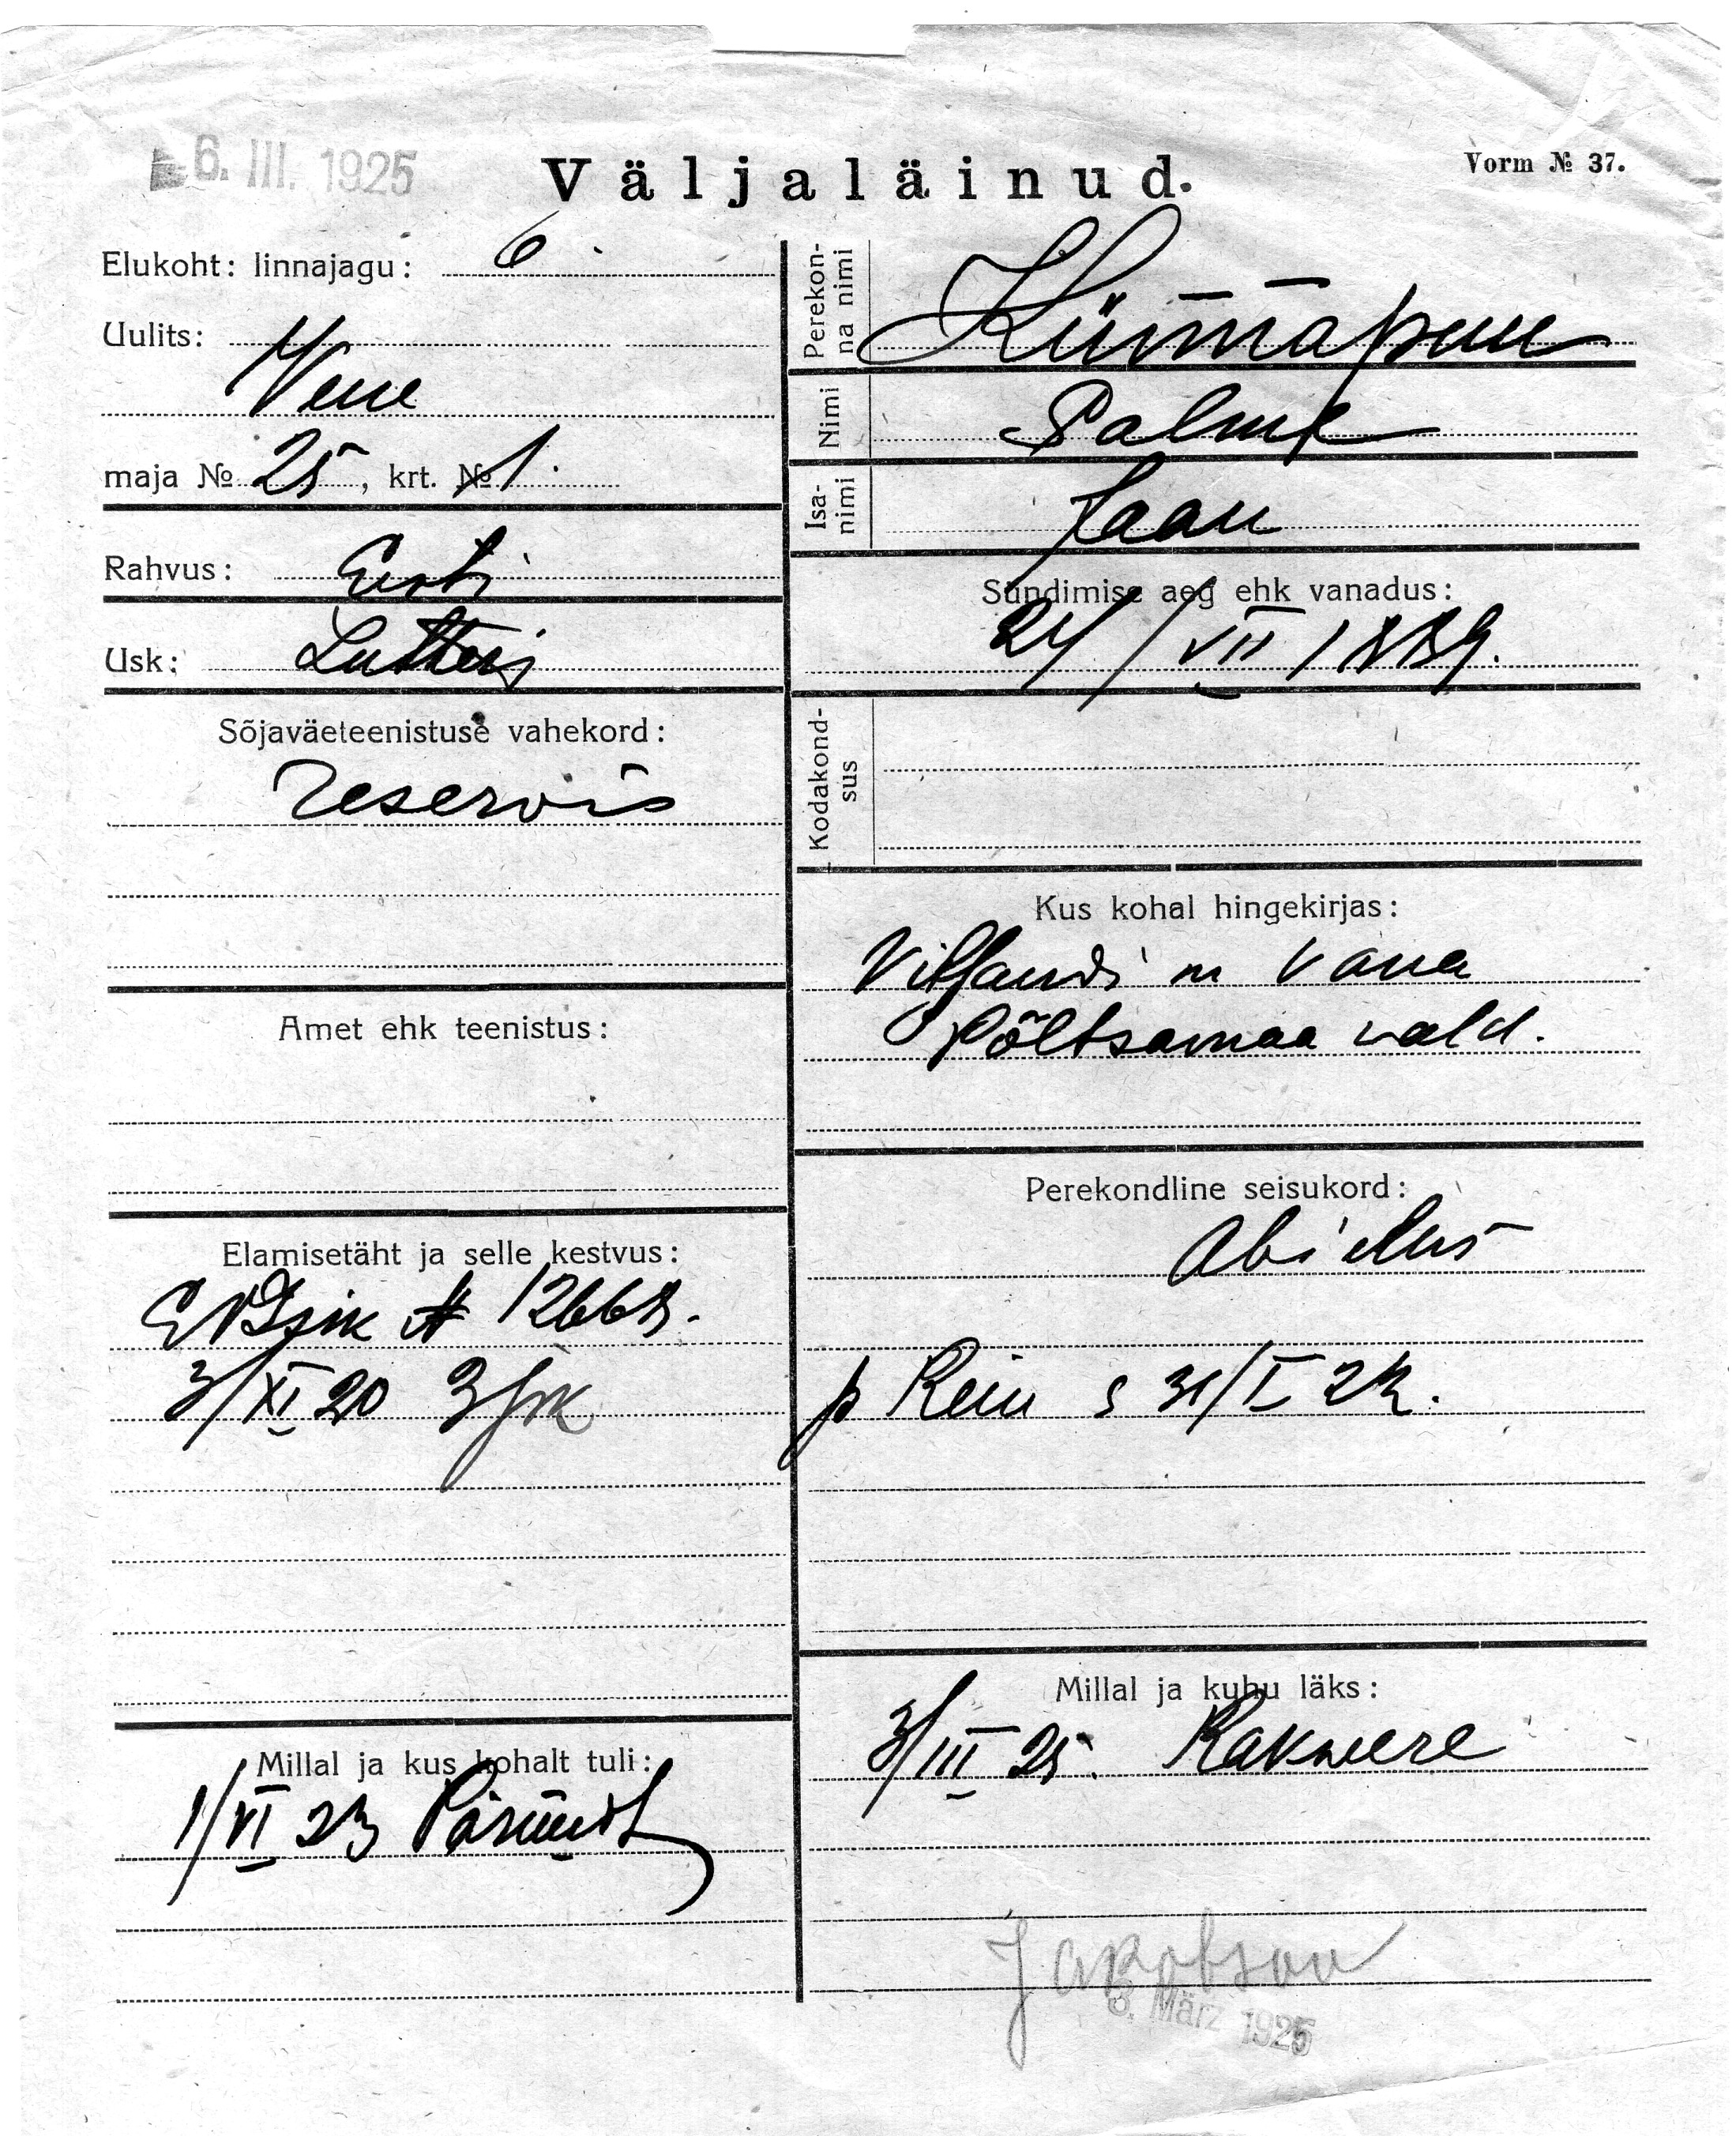 6. III. 1925
Väljaläinud.
Vorm № 37.
Elukoht: linnajagu: 6.
Uulits:
Vene
maja № 25, krt. № 1.
Rahvus: Eesti
Usk: Lutteri
Sõjaväeteenistuse vahekord:
reservis
Amet ehk teenistus:
Elamisetäht ja selle kestvus:
№ 12668.
3/XI 20
Millal ja kus kohalt tuli:
1/VI 23 Pärnust
Perekonna nimi Künnapuu
Nimi Palme
Isanimi Jaan
Sündimise aeg ehk vanadus:
24/VII 1889.
Kodakondsus
Kus kohal hingekirjas:
Viljandi m Vana
Põltsamaa vald.
Perekondline seisukord:
Abielus
p Rein s 31/I 22.
Millal ja kuhu läks:
3/III 25. Rakwere
Jakobson
6. März 1925